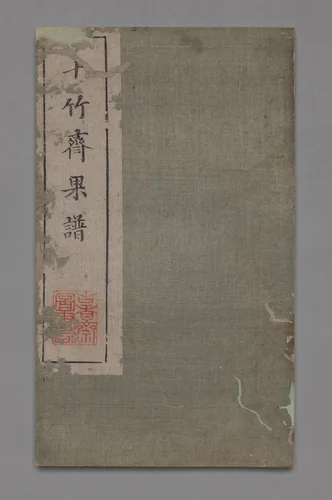 十竹齋果譜